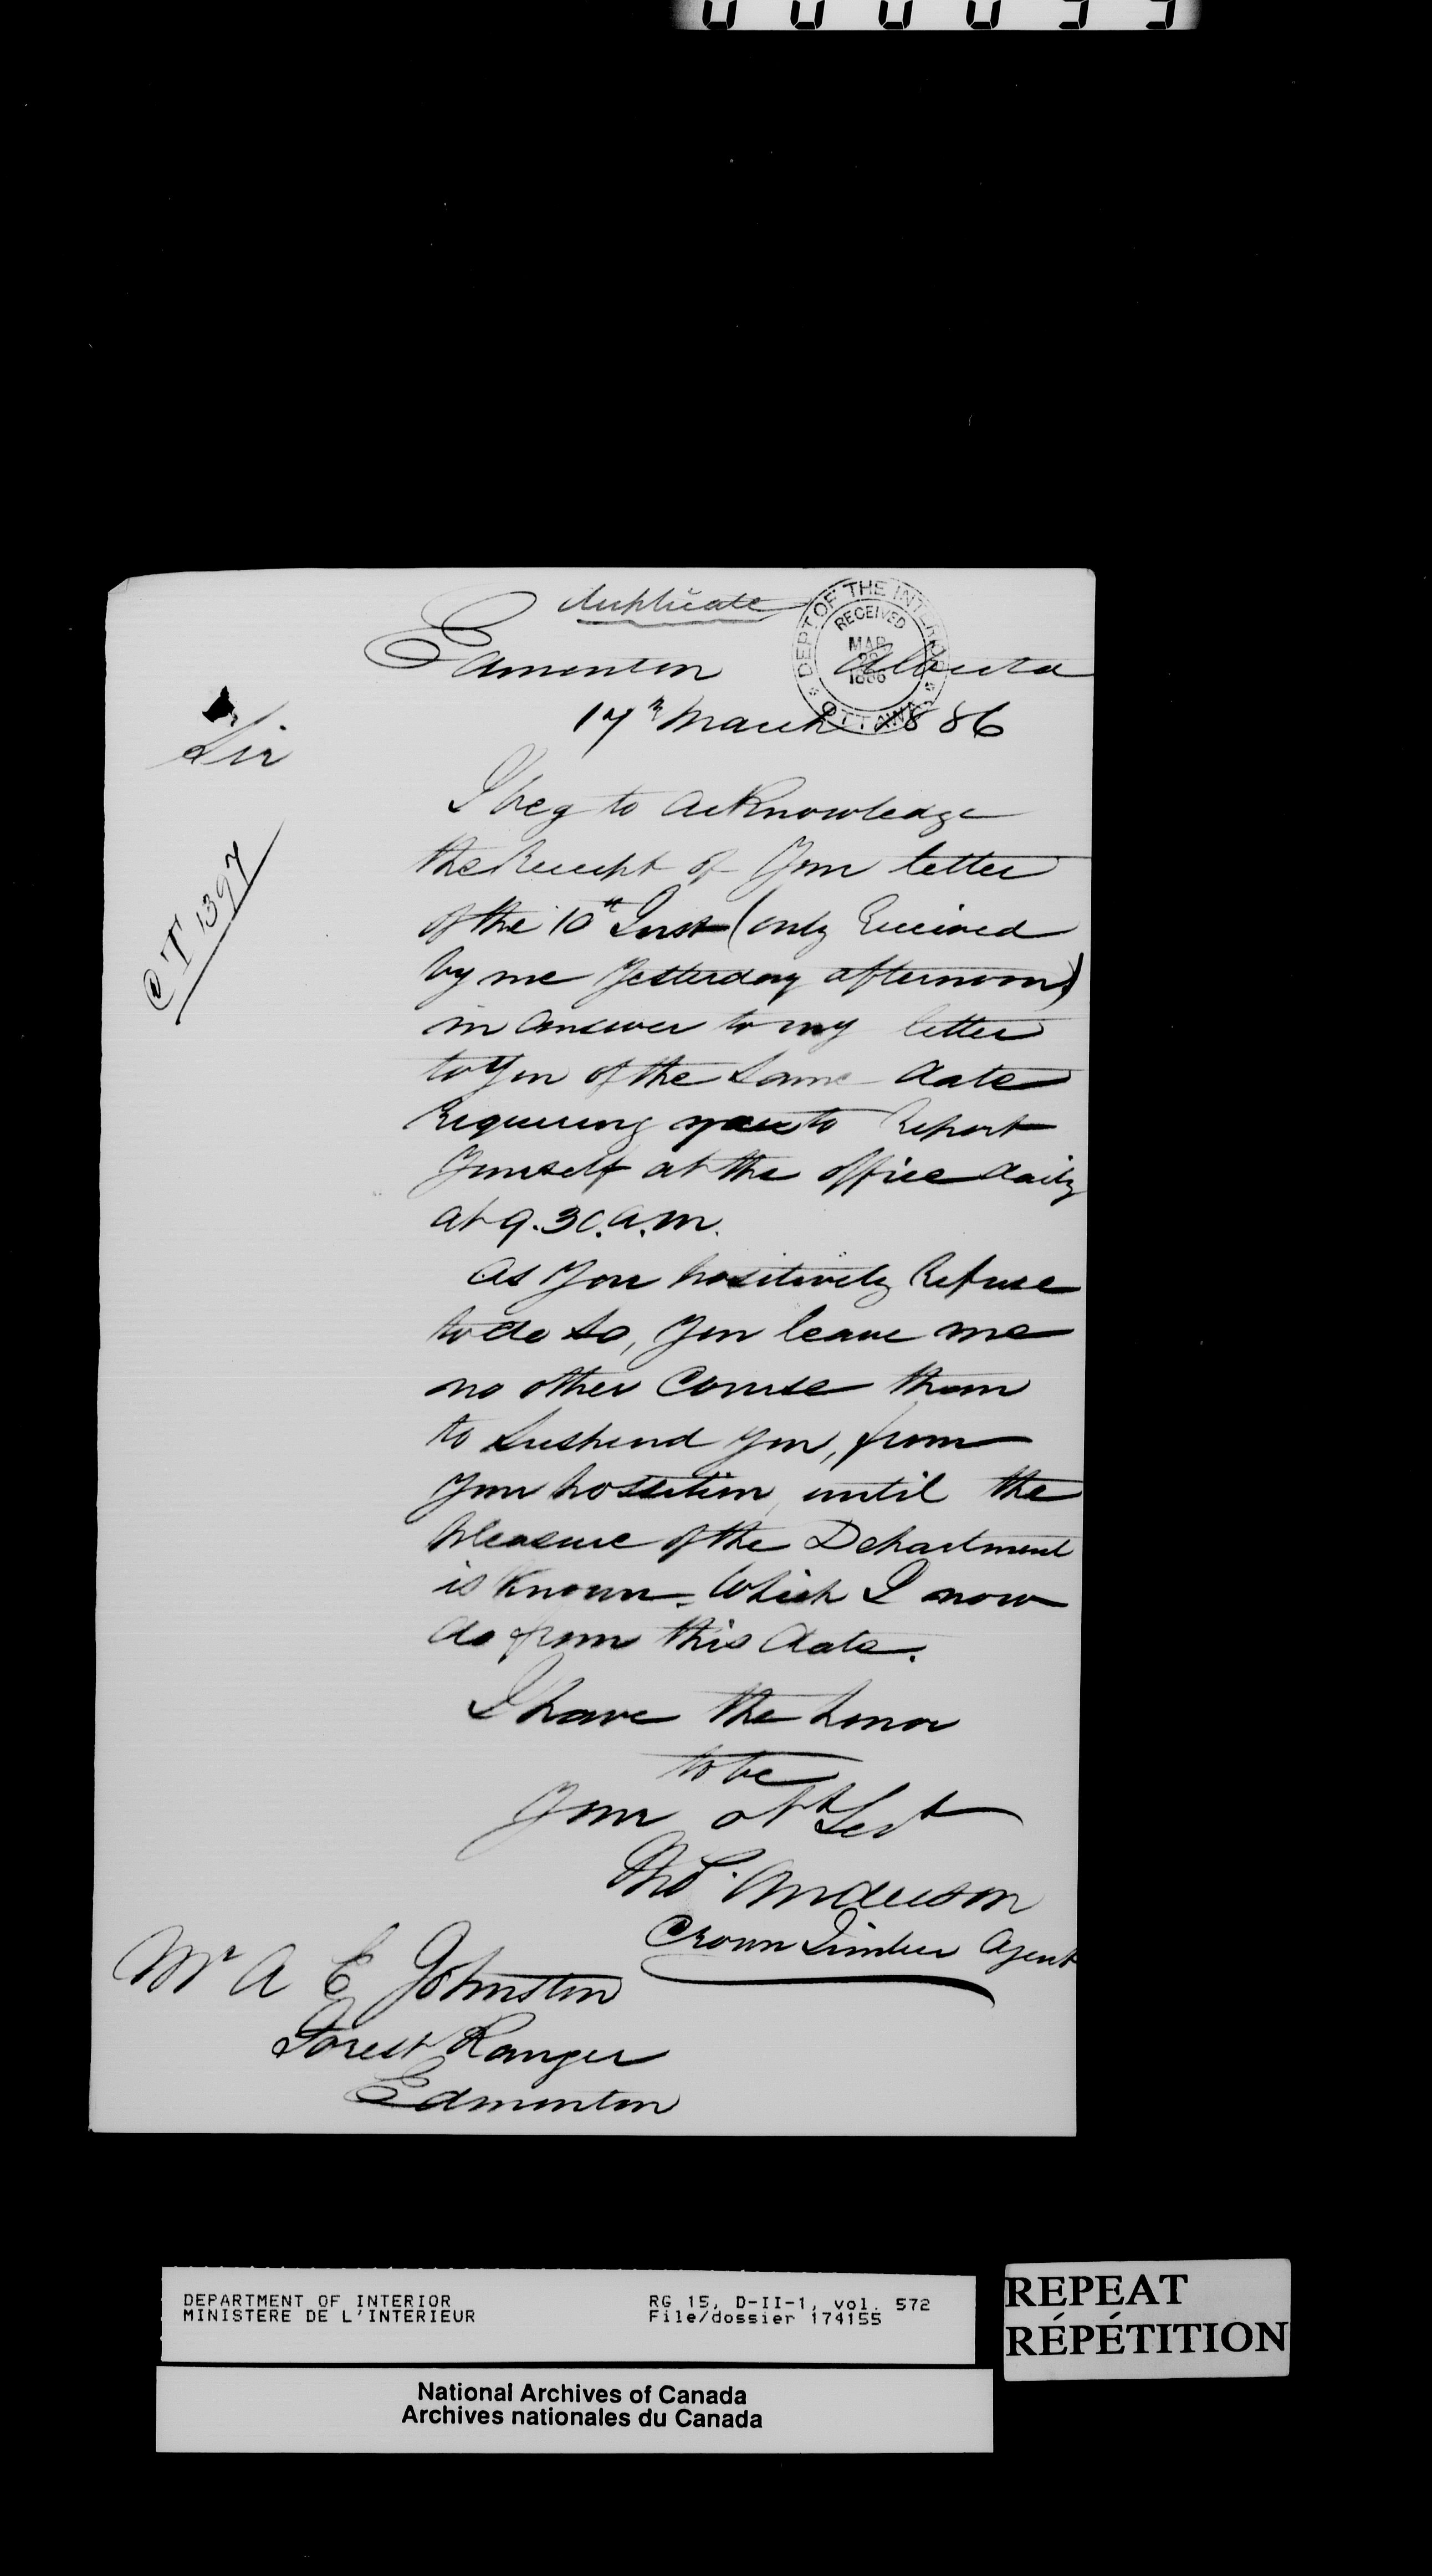 000099
duplicate
DEPT OF THE INTERIOR
RECEIVED
MAR
29
1886
OTTAWA
Edmonton Alberta
17th March 1886
Sir
CT 1397
I beg to acknowledge
the Receipt of Your letter
of the 10th Inst (only Received
by me Yesterday afternoon)
in answer to my letter
to You of the same date
Requiring you to Report
Yourself at the office daily
at 9.30. a.m.
As You positively Refuse
to do so, You leave me
no other Course than
to suspend You, from
Your possition, until the
pleasure of the Department
is Known. Which I now
do from this date.
I have the honor
to be
Your obt Sevt
Thos. Anderson
Crown Timber Agent
Mr A E Johnston
Forest Ranger
Edmonton
DEPARTMENT OF INTERIOR RG 15, D-II-1, vol. 572
MINISTERE DE L'INTERIEUR File/dossier 174155
REPEAT
RÉPÉTITION
National Archives of Canada
Archives nationales du Canada